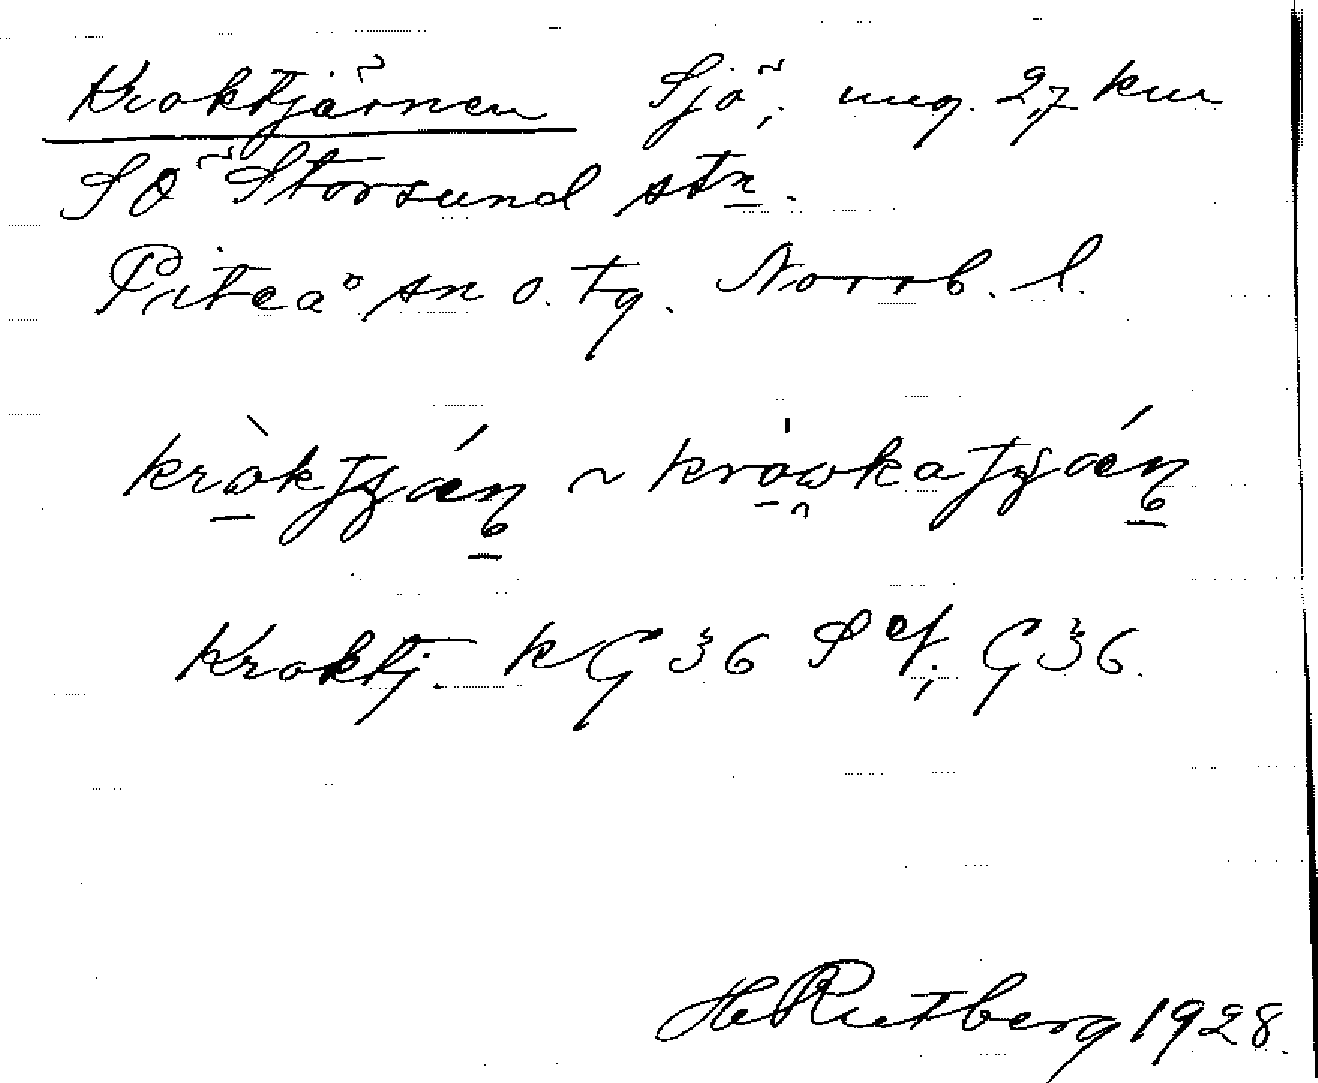 Kroktjärnen Sjö; ung. 2,7 km
SÖ Storsund stn.
Piteå sn o. tg. Norrb. l.
kròktjǽn ~ kròwkatjǽn
Kroktj. kG 36 S ef; G 36.
H Rutberg 1928.